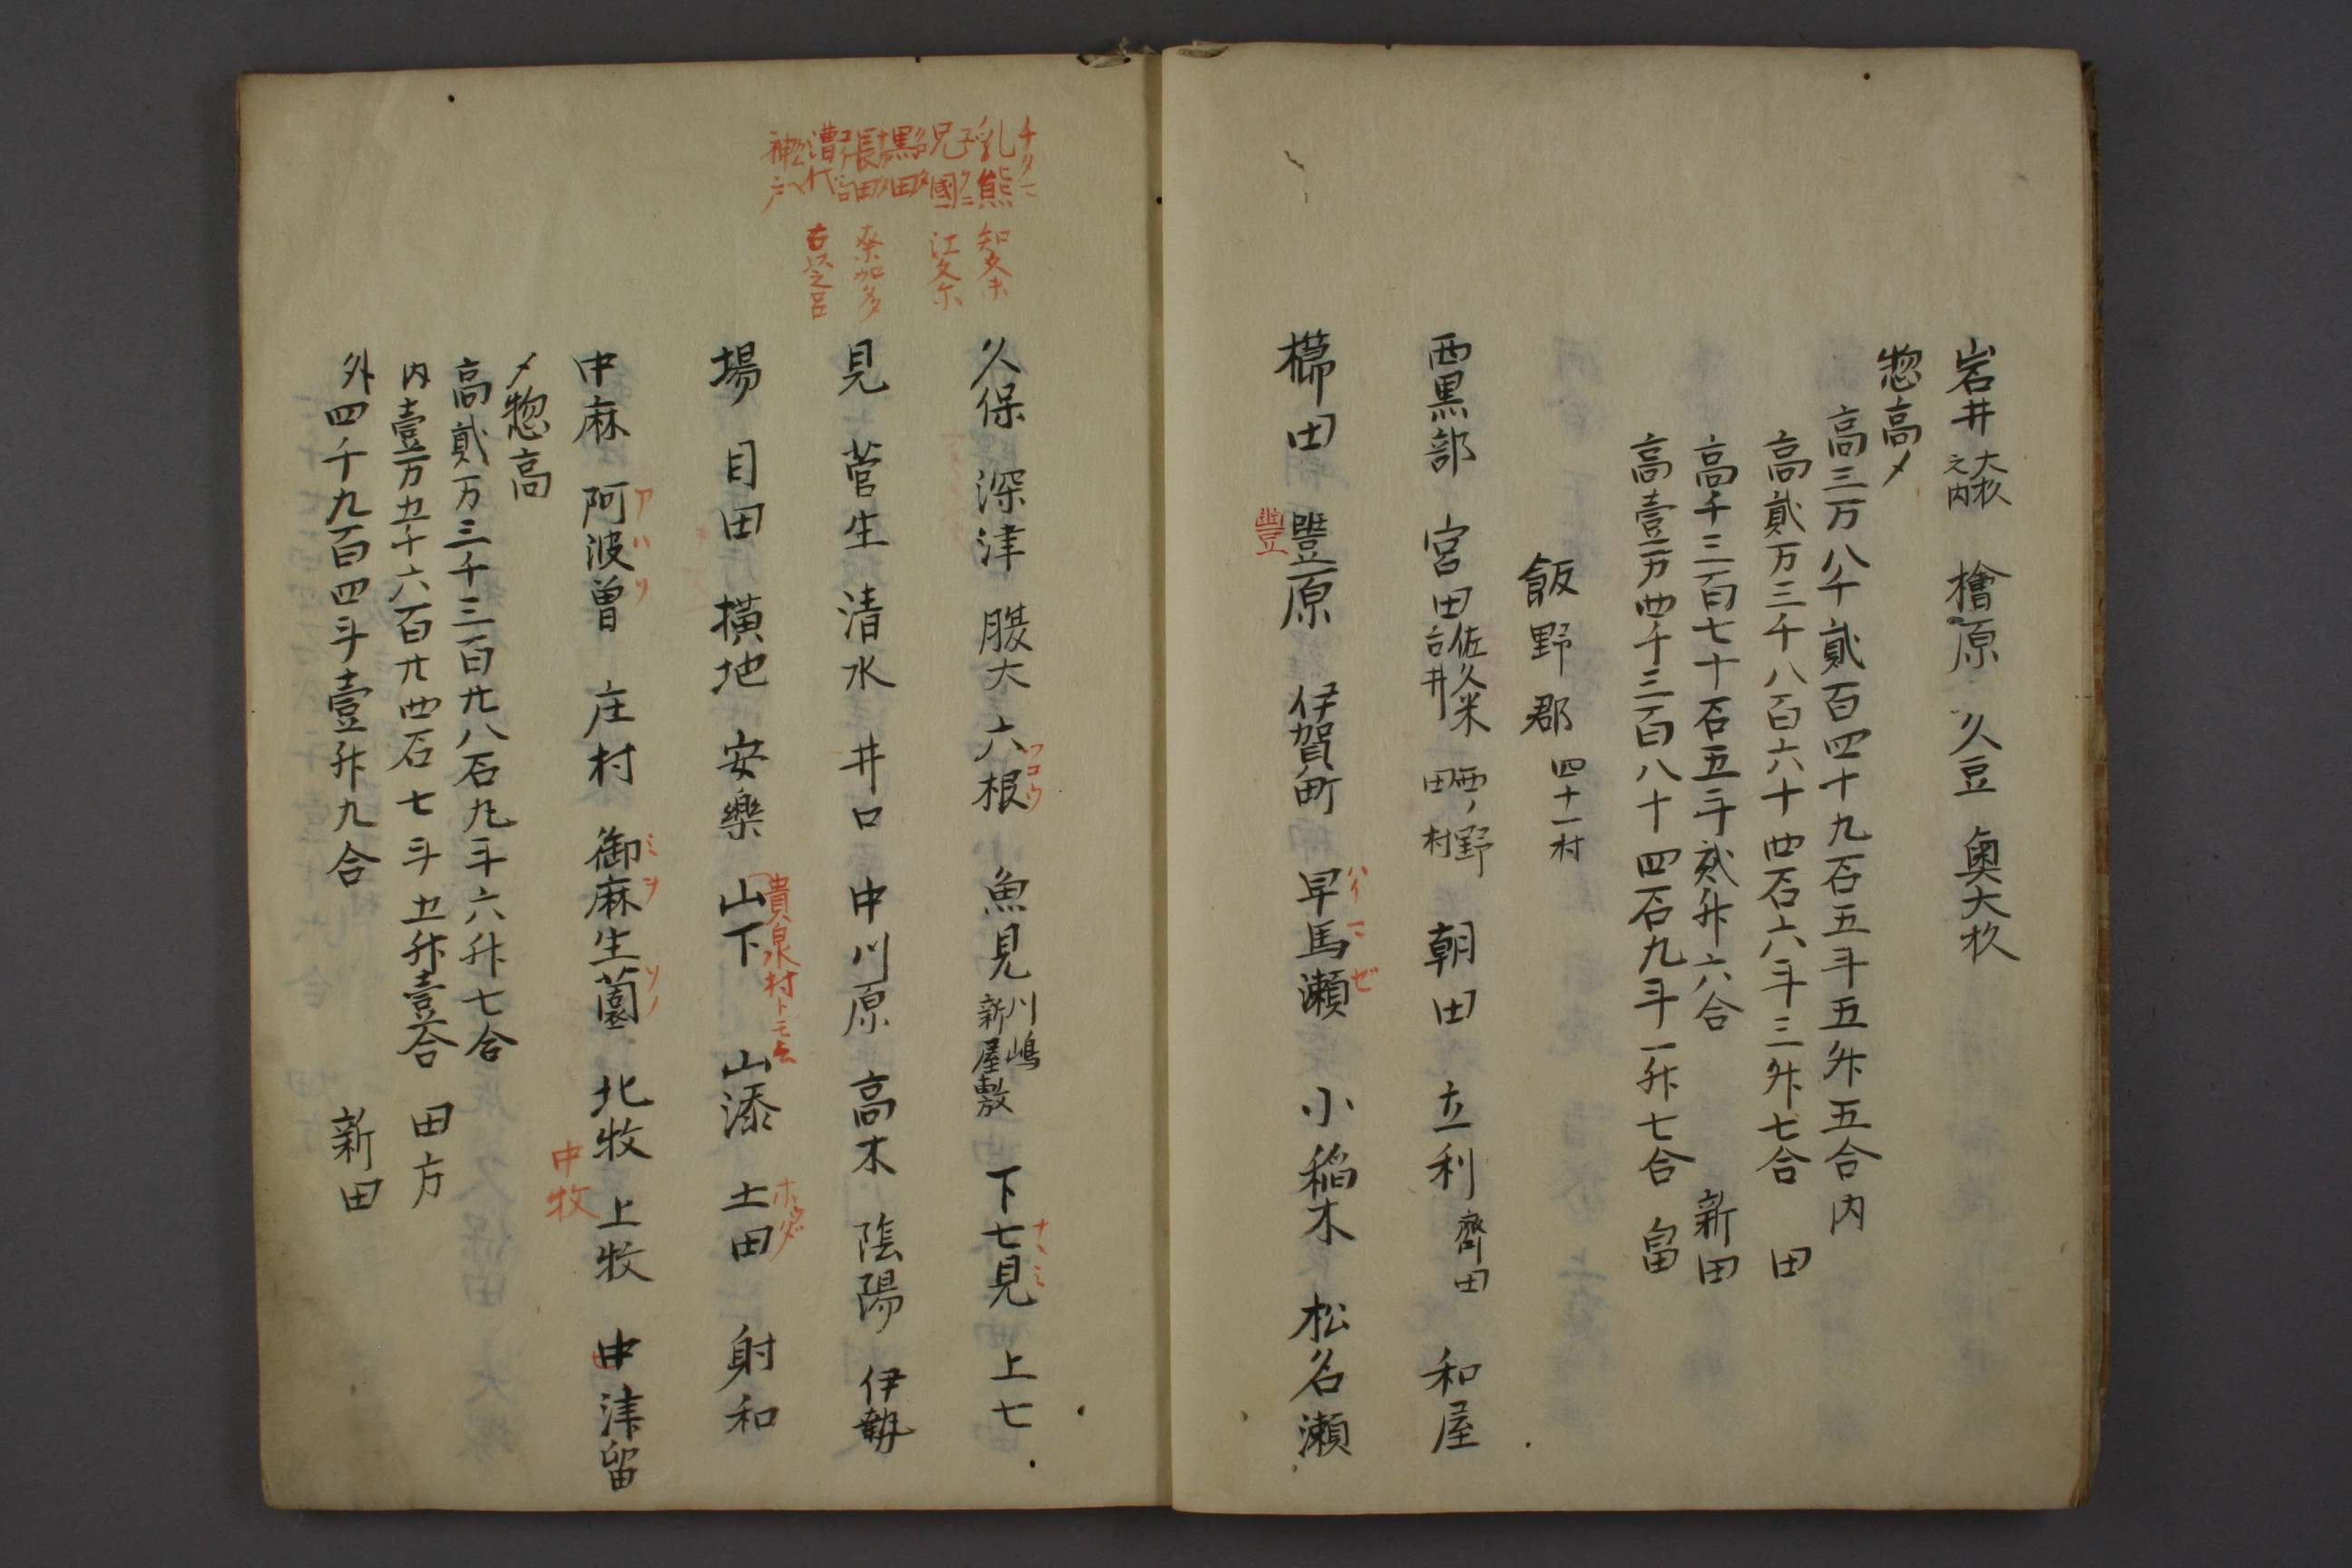 岩井 大杦之内 檜原 久豆 奥大杦
惣高〆
高三万八千貳百四十九石五斗五升五合内
高貳万三千八百六十四石六斗三升七合 田
高千三百七十石五斗貳升六合 新田
高壹万四千三百八十四石九斗一升七合 畠
飯野郡 四十一村
西黒部 宮田 佐久米 古井 西ノ野 田村 朝田 立利 齊田 和屋
櫛田 豐原 伊賀町 早馬瀬 小稲木 松名瀬
豐
ハイマゼ
チクマ
乳熊 知久末
兄國 江久尓
黒田
長田 奈加多
漕代 古以之呂
神戸
久保 深津 腹太 六根 魚見 川嶋 新屋敷 下七見 上七
ナヽミ
見 菅生 清水 井口 中川原 高木 陰陽 伊勢
場 目田 横地 安樂 山下 山添 土田 射和
貴泉村トモ云
中麻 阿波曽 庄村 御麻生薗 北牧 上牧 中津留
アハソ
ミヲソノ
中牧
〆惣高
高貳万三千三百廿八石九斗六升七合
内壹万五千六百廿四石七斗五升壹合 田方
外四千九百四斗壹升九合 新田